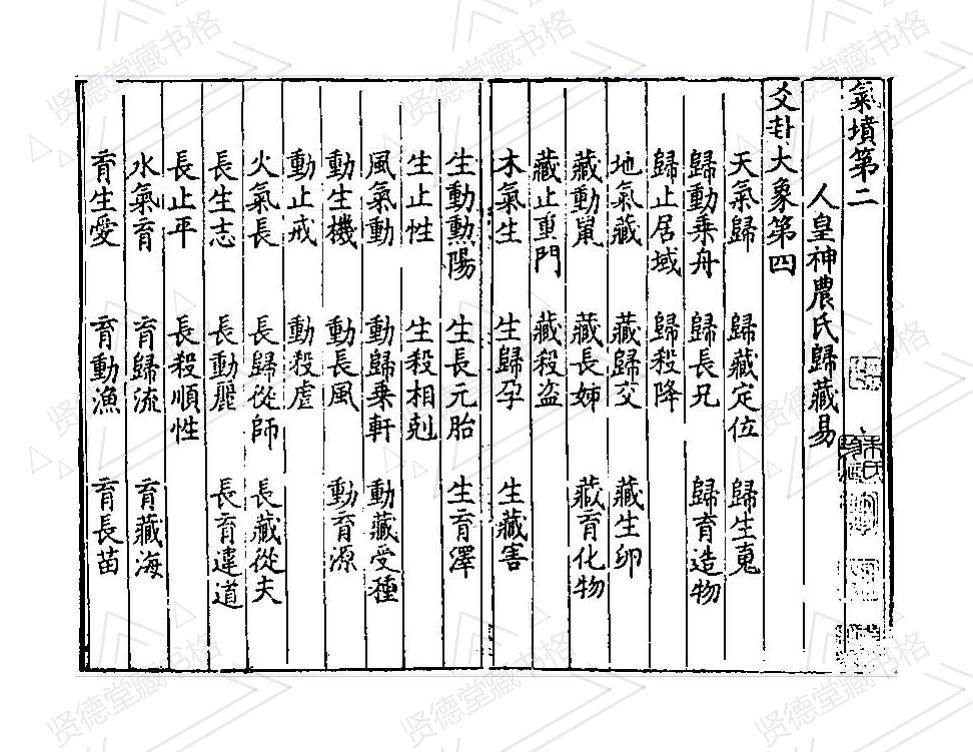 氣墳第二
人皇神農氏歸藏易
爻卦大象第四
天氣歸　歸藏定位　歸生䰟
歸動乘舟　歸長兄　歸育造物
歸止居域　歸殺降
地氣藏　藏歸交　藏生卵
藏動鼠　藏長姊　藏育化物
藏止重門　藏殺盜
木氣生　生歸孕　生藏害
生動勲陽　生長元胎　生育澤
生止性　生殺相剋
風氣動　動歸乘軒　動藏受種
動生機　動長風　動育源
動止戒　動殺虐
火氣長　長歸從師　長藏從夫
長生志　長動麗　長育違道
長止平　長殺順性
水氣育　育歸流　育藏海
育生愛　育動漁　育長苗
贤德堂藏书格